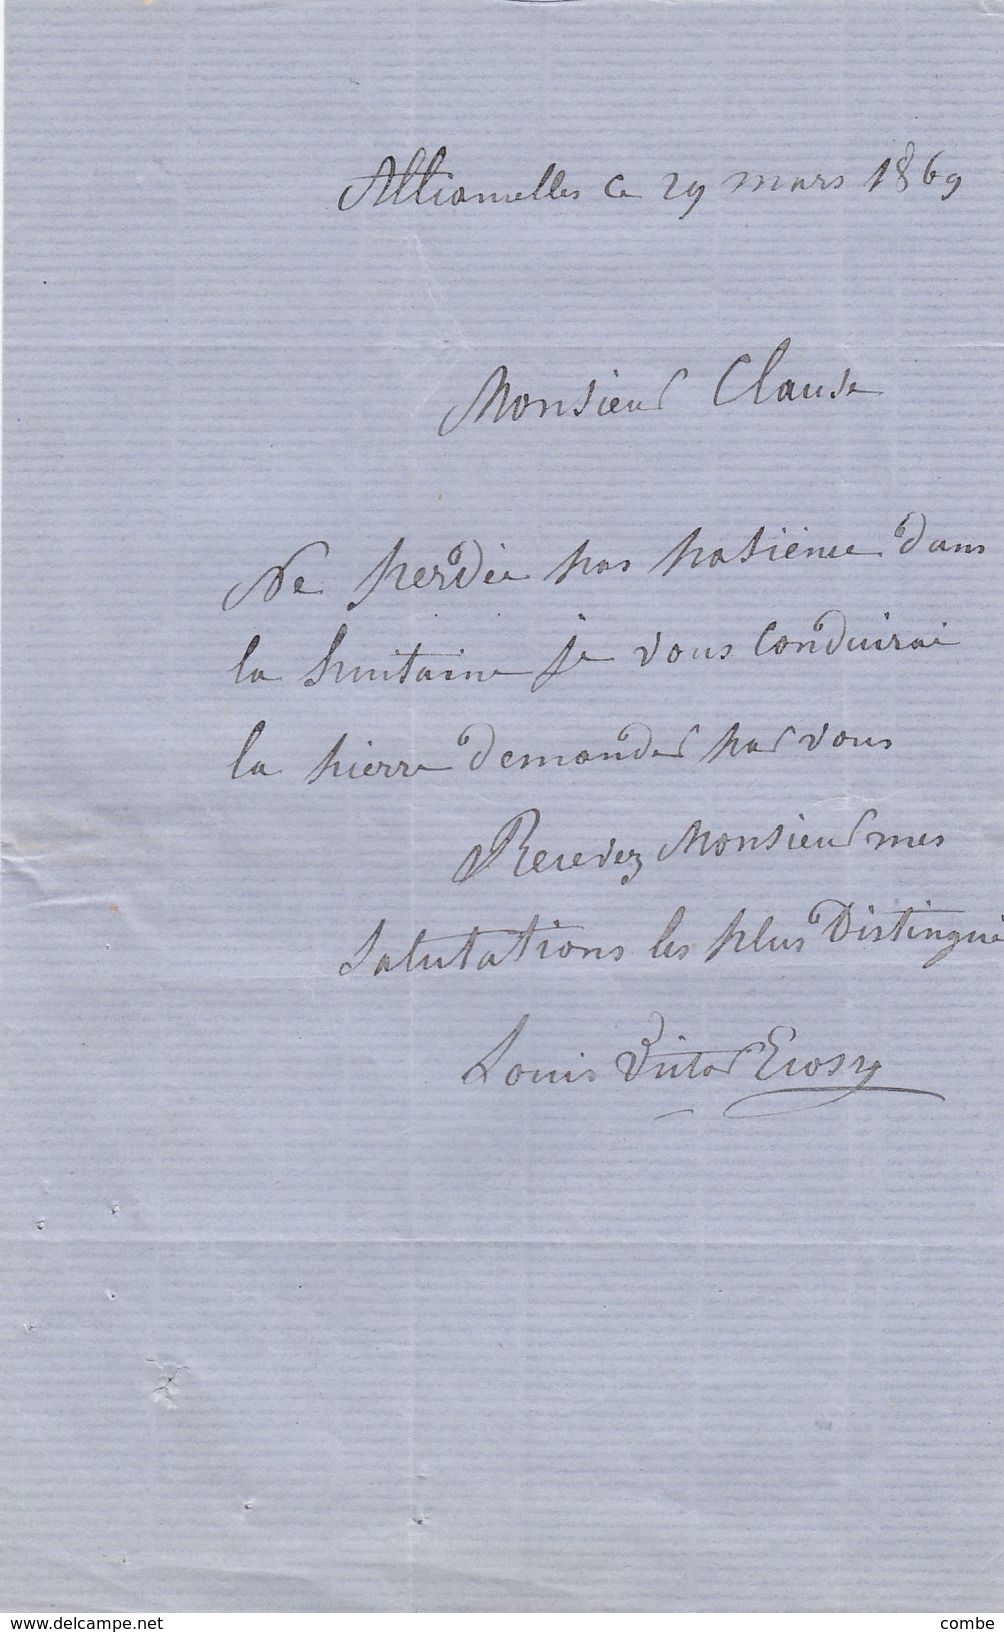 Allianvelles ce 29 mars 1869
Monsieur Clause
Ne perdée pas patiénce dans
la huitaine je vous conduirai
la pierre demander par vous
Recevez Monsieur mes
salutations les plus Distingué
Louis Victor
www.delcampe.net
combe